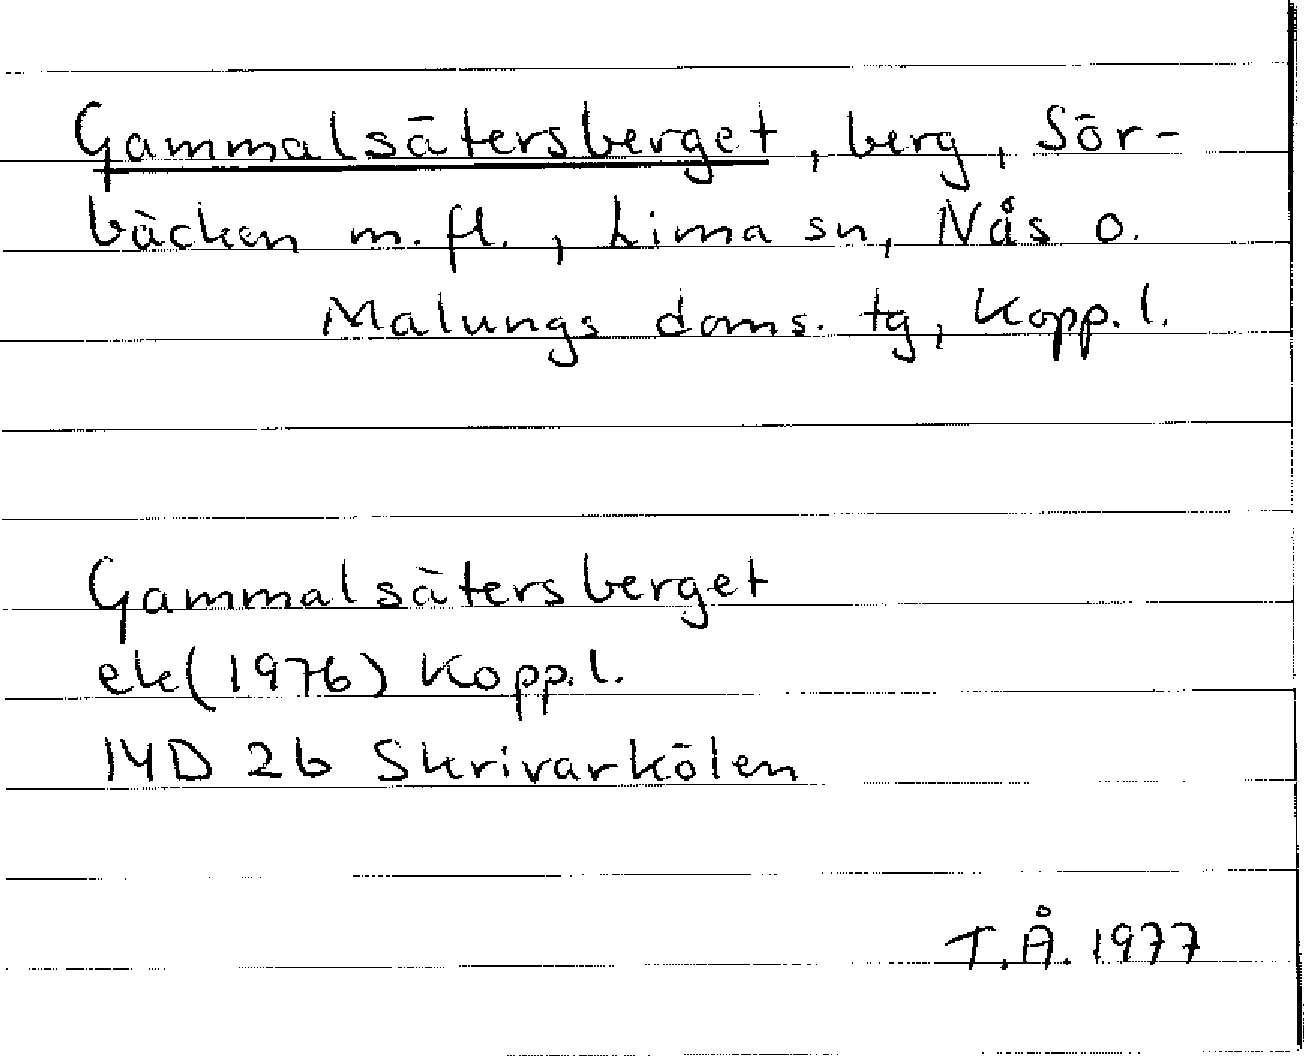 Gammalsätersberget, berg, Sör-
bäcken m.fl., Lima sn, Nås o.
Malungs doms. tg, Kopp.l.
Gammalsätersberget
ek(1976) Kopp.l.
14D 2b Skrivarkölen
T.Å. 1977